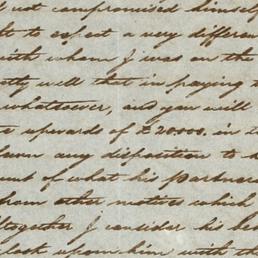 not compromised himself
to expect a very different
with whom I was on the
well that in praying t
whatsoever, and you will
upwards of £20000. in
any disposition to
of what his partner
from other motives which
together I consider his
look upon him with th